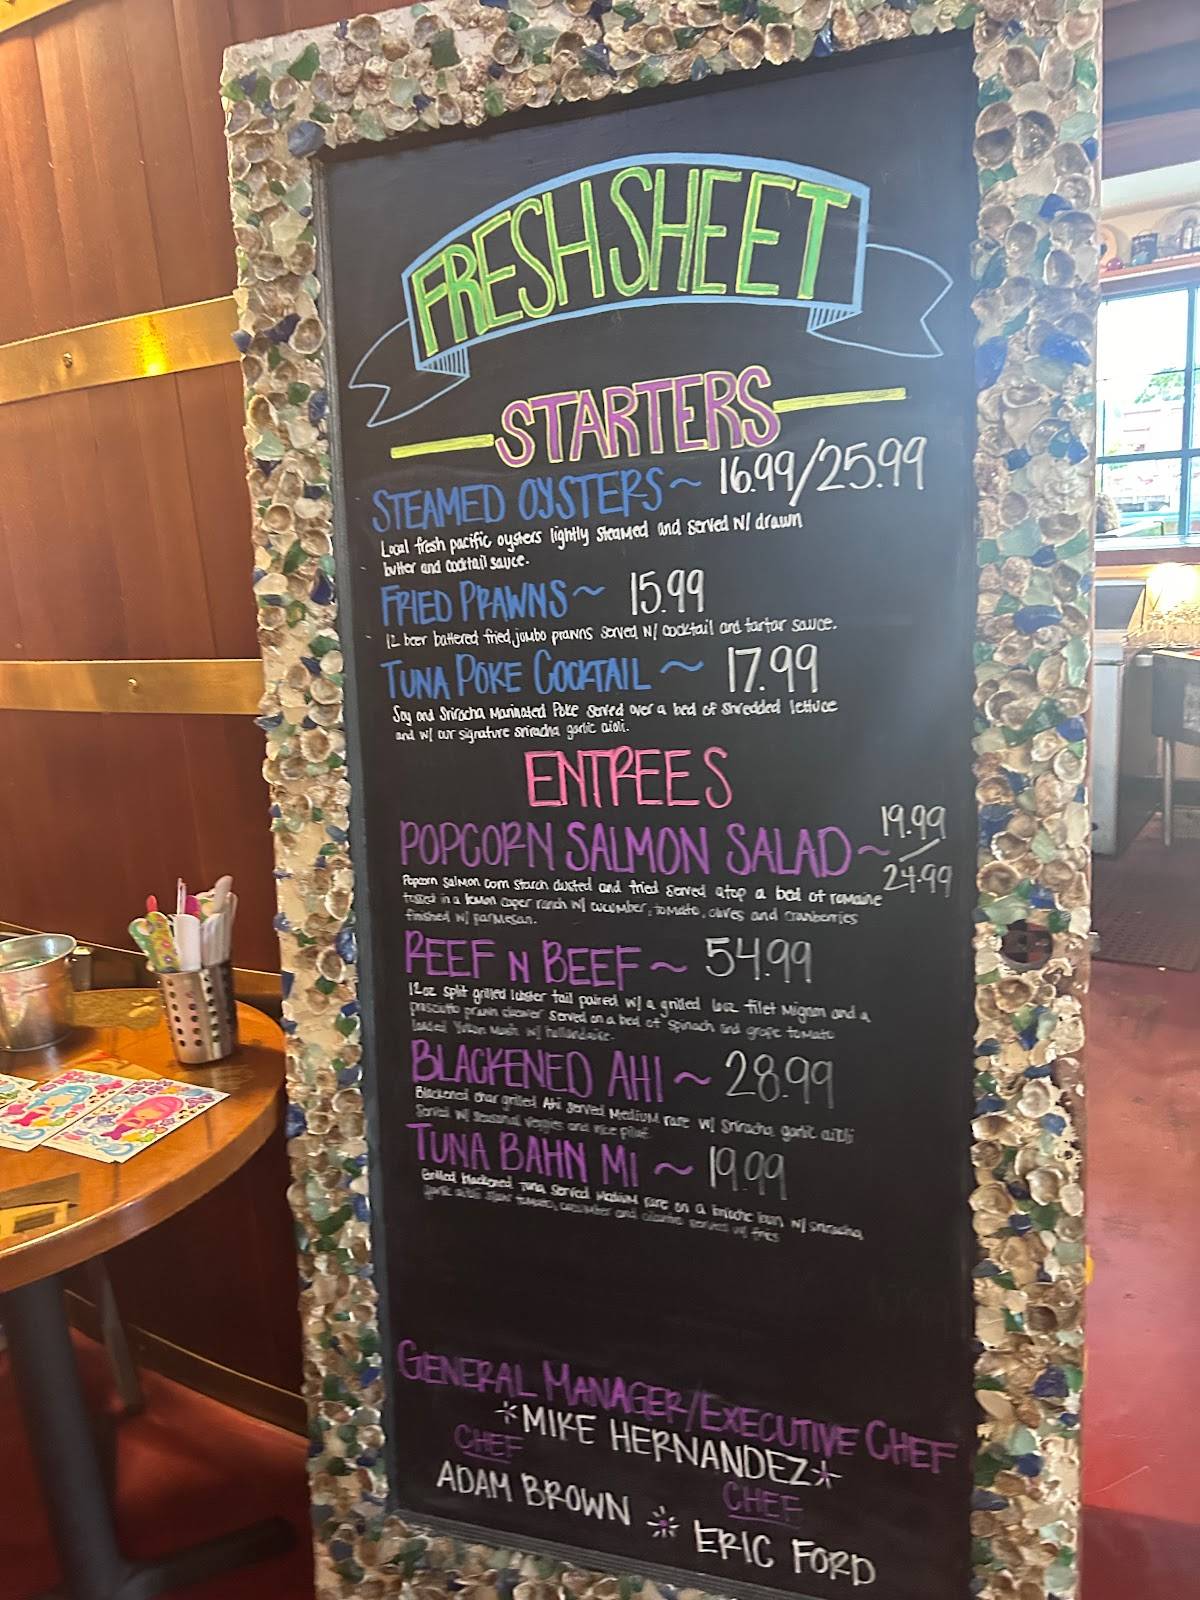 FRESH SHEET
STARTERS
STEAMED OYSTERS ~ 16.99/25.99
Local fresh pacific oysters lightly steamed and served w/ drawn
butter and cocktail sauce.
FRIED PRAWNS ~ 15.99
12 beer battered fried, jumbo prawns served w/ cocktail and tartar sauce.
TUNA POKE COCKTAIL ~ 17.99
Soy and Sriracha Marinated Poke served over a bed of shredded lettuce
and w/ our signature sriracha garlic aioli.
ENTREES
POPCORN SALMON SALAD ~ 19.99/24.99
Popcorn salmon corn starch dusted and fried served atop a bed of romaine
tossed in a lemon caper ranch w/ cucumber, tomato, olives and cranberries
finished w/ parmesan.
REEF N BEEF ~ 54.99
12oz split grilled lobster tail paired w/ a grilled 6oz filet mignon and a
prosciutto prawn skewer served on a bed of spinach and grape tomato
loaded Yukon mash w/ hollandaise.
BLACKENED AHI ~ 28.99
Blackened char grilled Ahi served medium rare w/ sriracha garlic aioli
served w/ seasonal veggies and rice pilaf.
TUNA BAHN MI ~ 19.99
Grilled blackened tuna served medium rare on a brioche bun w/ sriracha
garlic aioli slaw tomato, cucumber and cilantro served w/ fries
GENERAL MANAGER/EXECUTIVE CHEF
MIKE HERNANDEZ
CHEF
ADAM BROWN
CHEF
ERIC FORD